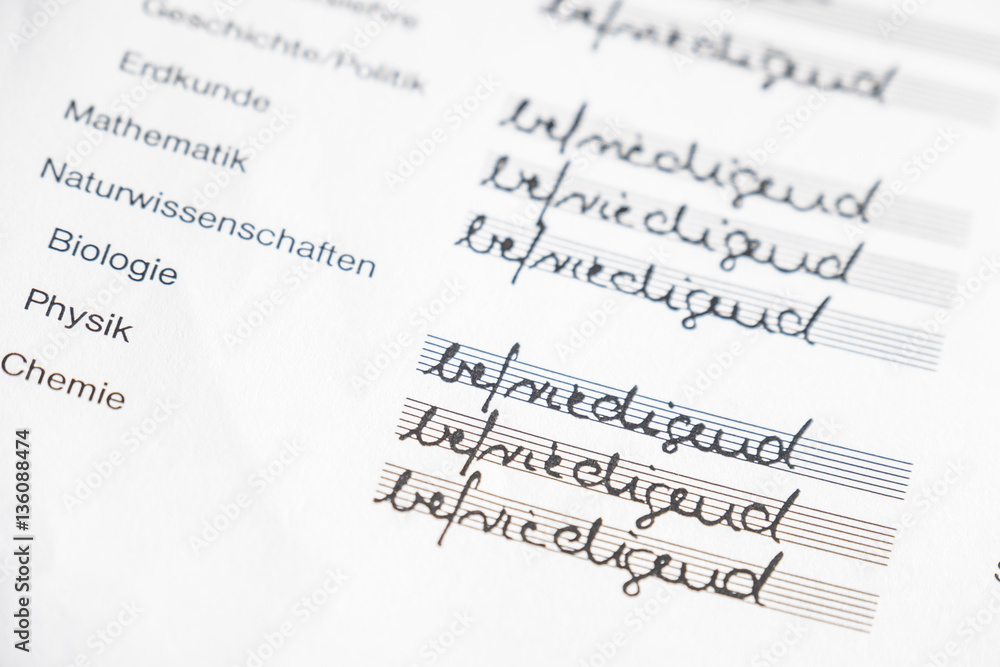 befriedigend
Geschichte/Politik befriedigend
Erdkunde befriedigend
Mathematik befriedigend
Naturwissenschaften
Biologie befriedigend
Physik befriedigend
Chemie befriedigend
Adobe Stock | #136088474